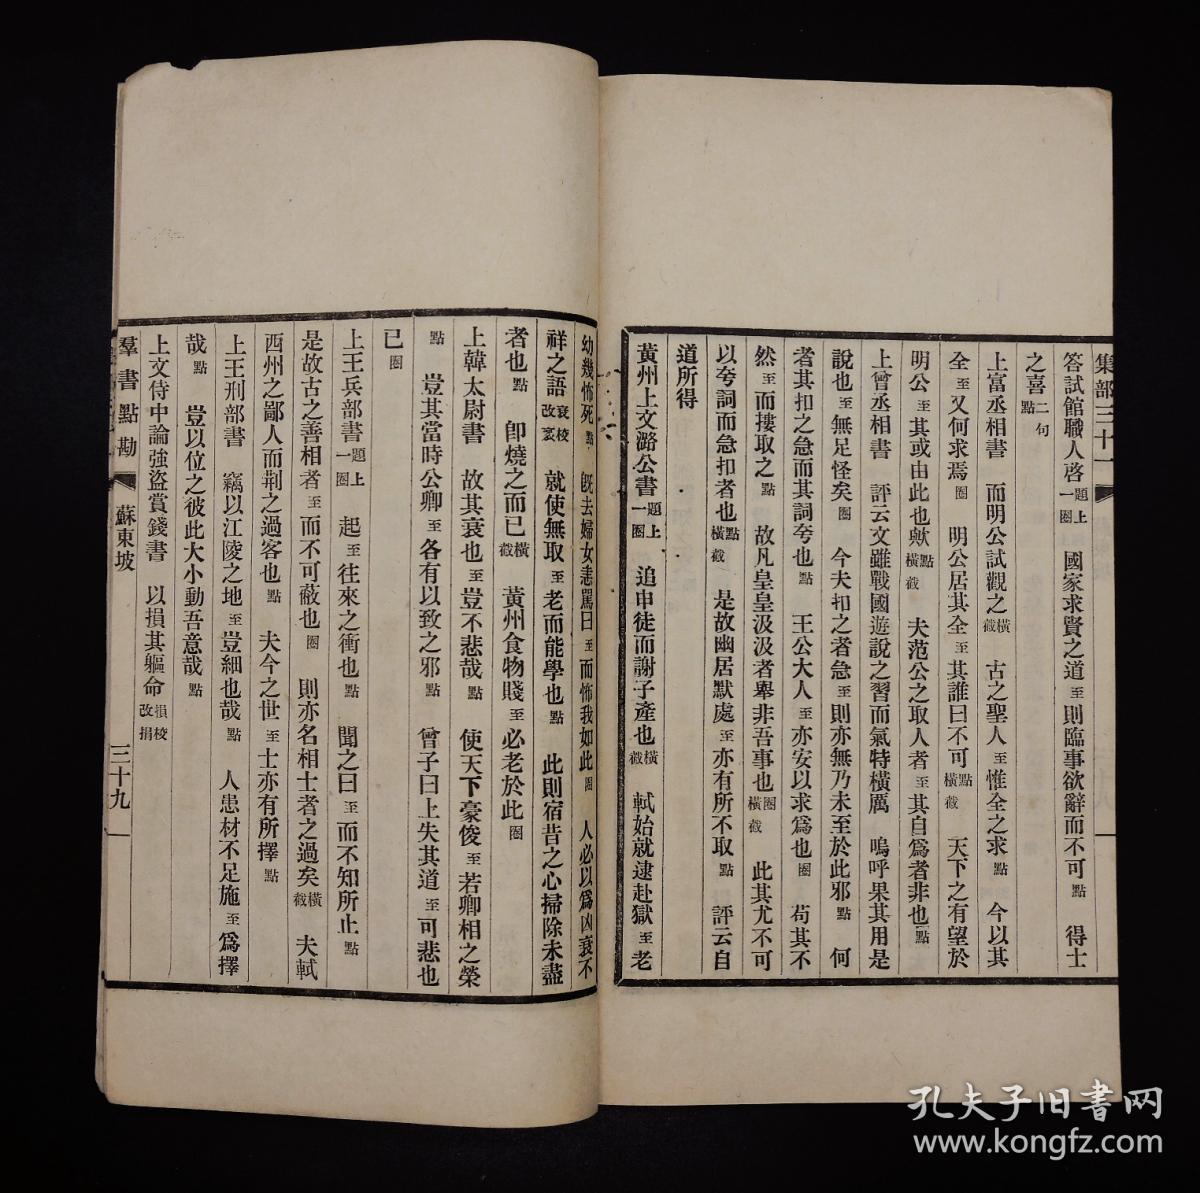 集部三十一
答試館職人啓 題上一圈 國家求賢之道至則臨事欲辭而不可點 得士
之喜二句點
上富丞相書 而明公試觀之橫截 古之聖人至惟全之求點 今以其
全至又何求焉圈 明公居其全至其誰曰不可點橫截 天下之有望於
明公至其或由此也歟點橫截 夫范公之取人者至其自爲者非也點
上曾丞相書 評云文雖戰國遊說之習而氣特橫厲 嗚呼果其用是
說也至無足怪矣圈 今夫扣之者急至則亦無乃未至於此邪點 何
者其扣之急而其詞夸也點 王公大人至亦安以求爲也圈 苟其不
然至而摟取之點 故凡皇皇汲汲者舉非吾事也圈橫截 此其尤不可
以夸詞而急扣者也點橫截 是故幽居默處至亦有所不取點 評云自
道所得
黃州上文潞公書 題上一圈 追申徒而謝子產也橫截 軾始就逮赴獄至老
幼幾怖死點 旣去婦女恚罵曰至而怖我如此圈 人必以爲凶衰不
祥之語衰校改裏 就使無取至老而能學也點 此則宿昔之心掃除未盡
者也點 卽燒之而已橫截 黃州食物賤至必老於此圈
上韓太尉書 故其衰也至豈不悲哉點 使天下豪俊至若卿相之榮
點 豈其當時公卿至各有以致之邪點 曾子曰上失其道至可悲也
已圈
上王兵部書 題上一圈 起至往來之衝也點 聞之曰至而不知所止點
是故古之善相者至而不可蔽也圈 則亦名相士者之過矣橫截 夫軾
西州之鄙人而荆之過客也點 夫今之世至士亦有所擇點
上王刑部書 竊以江陵之地至豈細也哉點 人患材不足施至爲擇
哉點 豈以位之彼此大小動吾意哉點
上文侍中論強盜賞錢書 以損其軀命損校改捐
羣書點勘 蘇東坡 三十九
孔夫子旧書网
www.kongfz.com